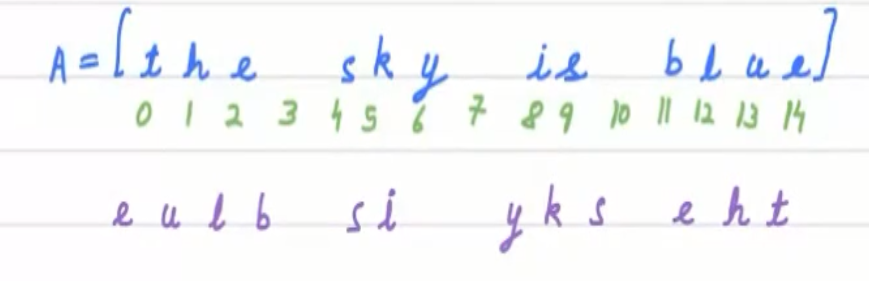 A = [the sky is blue]
0 1 2 3 4 5 6 7 8 9 10 11 12 13 14
e u l b si y k s e h t